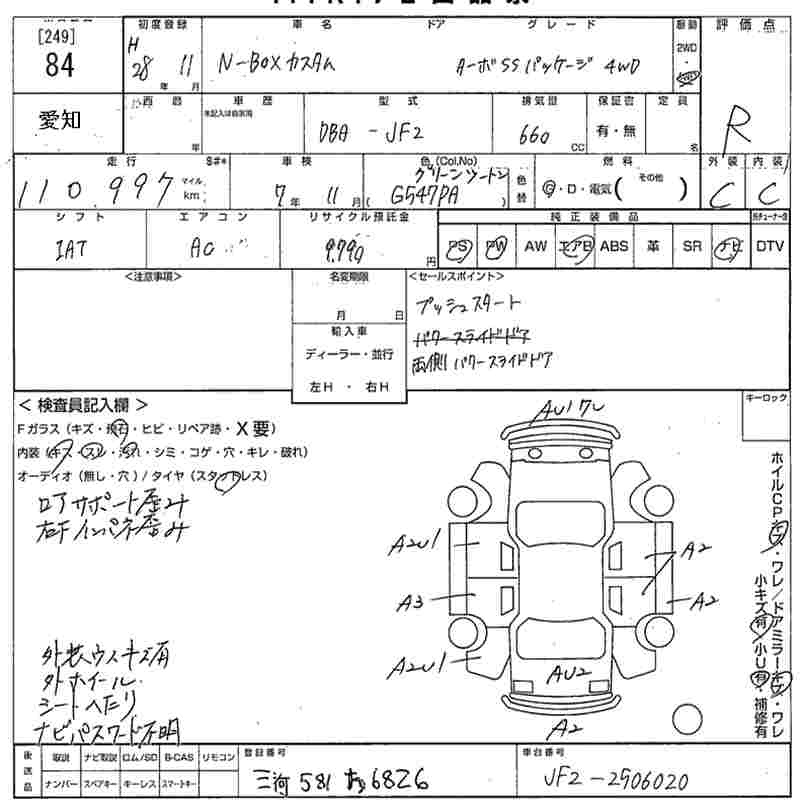 [249]
84
初度登録
車名
ドア
グレード
駆動
評価点
H 28 年 11 月
N-BOXカスタム
ターボSSパッケージ 4WD
2WD
・
4WD
R
愛知
西暦
年
車歴
未記入は自家用
型式
DBA - JF2
排気量
660 CC
保証書
有・無
定員
名
走行
S#*
110,997
マイル
km
車検
7年 11月
色(Col,No)
グリーンツートン
( G547PA )
色替
燃料
G・D・電気( その他 )
外装
C
内装
C
シフト
IAT
エアコン
AC
リサイクル預託金
9,790 円
純正装備品
PS
PW
AW
エアB
ABS
革
SR
ナビ
DTV
<注意事項>
名変期限
月 日
輸入車
ディーラー・並行
左H ・ 右H
<セールスポイント>
プッシュスタート
パワースライドドア
両側パワースライドドア
< 検査員記入欄 >
Fガラス(キズ・飛石・ヒビ・リペア跡・X要)
内装(キズ・スレ・汚れ・シミ・コゲ・穴・キレ・破れ)
オーディオ(無し・穴)/タイヤ(スタッドレス)
ロアサポート歪み
右下インパネ歪み
外装ウスキズ有
外ホイール
シートへたり
ナビパスワード不明
キーロック
AU1ワレ
A2U1
A2
A3
A2
A2U1
AU2
A2
ホイルCPキズ・ワレ/ドアミラーキズ・ワレ
小キズ有/小U有・補修有
後送品
取説
ナビ取説
ロム/SD
B-CAS
リモコン
ナンバー
スペアキー
キーレス
スマートキー
登録番号
三河 581 6826
車台番号
JF2-2506020